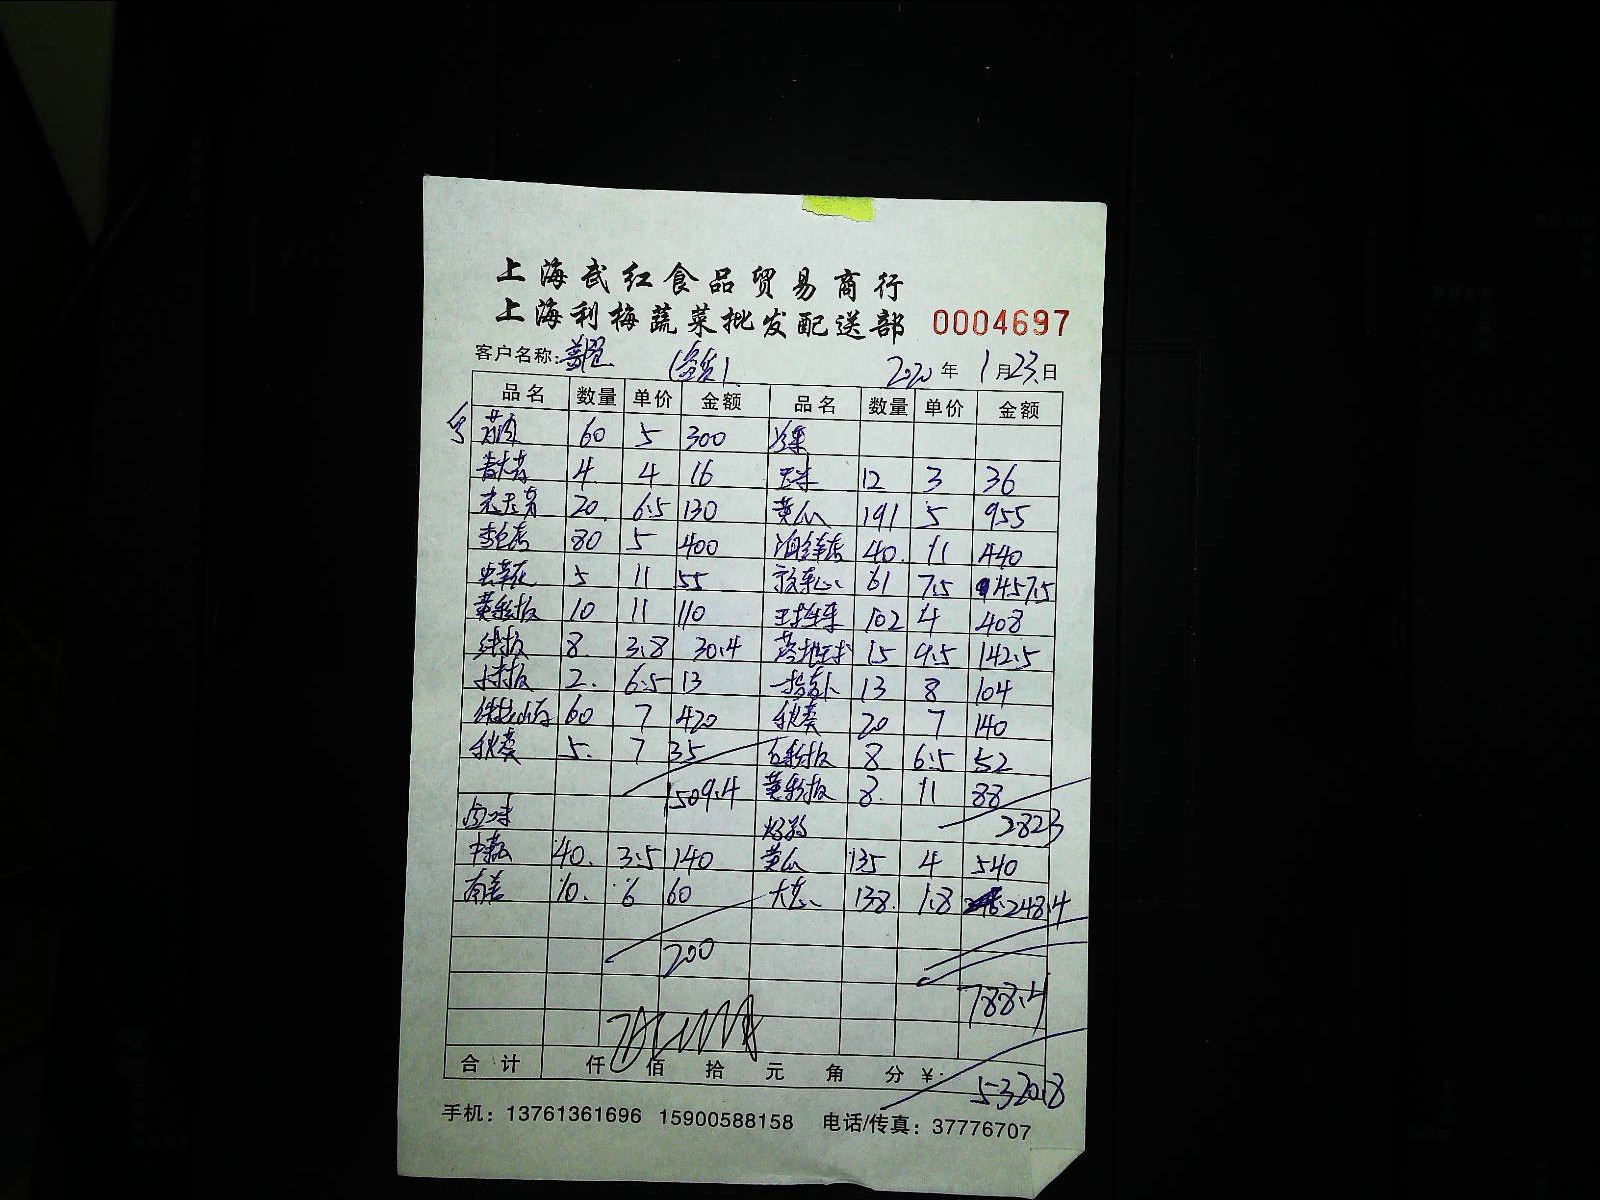 上海武红食品贸易商行
上海利梅蔬菜批发配送部 0004697
客户名称: 2020年1月23日
品名 数量 单价 金额 品名 数量 单价 金额
60 5 300 冷菜
4 4 16 玉米 12 3 36
20 6.5 130 黄瓜 191 5 955
80 5 400 40 11 440
虫草花 5 11 55 61 7.5 457.5
黄彩椒 10 11 110 102 4 408
8 3.8 30.4 15 9.5 142.5
2 6.5 13 13 8 104
铁棍山药 60 7 420 秋葵 20 7 140
秋葵 5 7 35 红彩椒 8 6.5 52
1509.4 黄彩椒 8 11 88
卤味 2823
40 3.5 140 黄瓜 135 4 540
10 6 60 大葱 138 1.8 248.4
200
788.4
合计 仟 佰 拾 元 角 分 ¥: 5320.8
手机: 13761361696 15900588158 电话/传真: 37776707